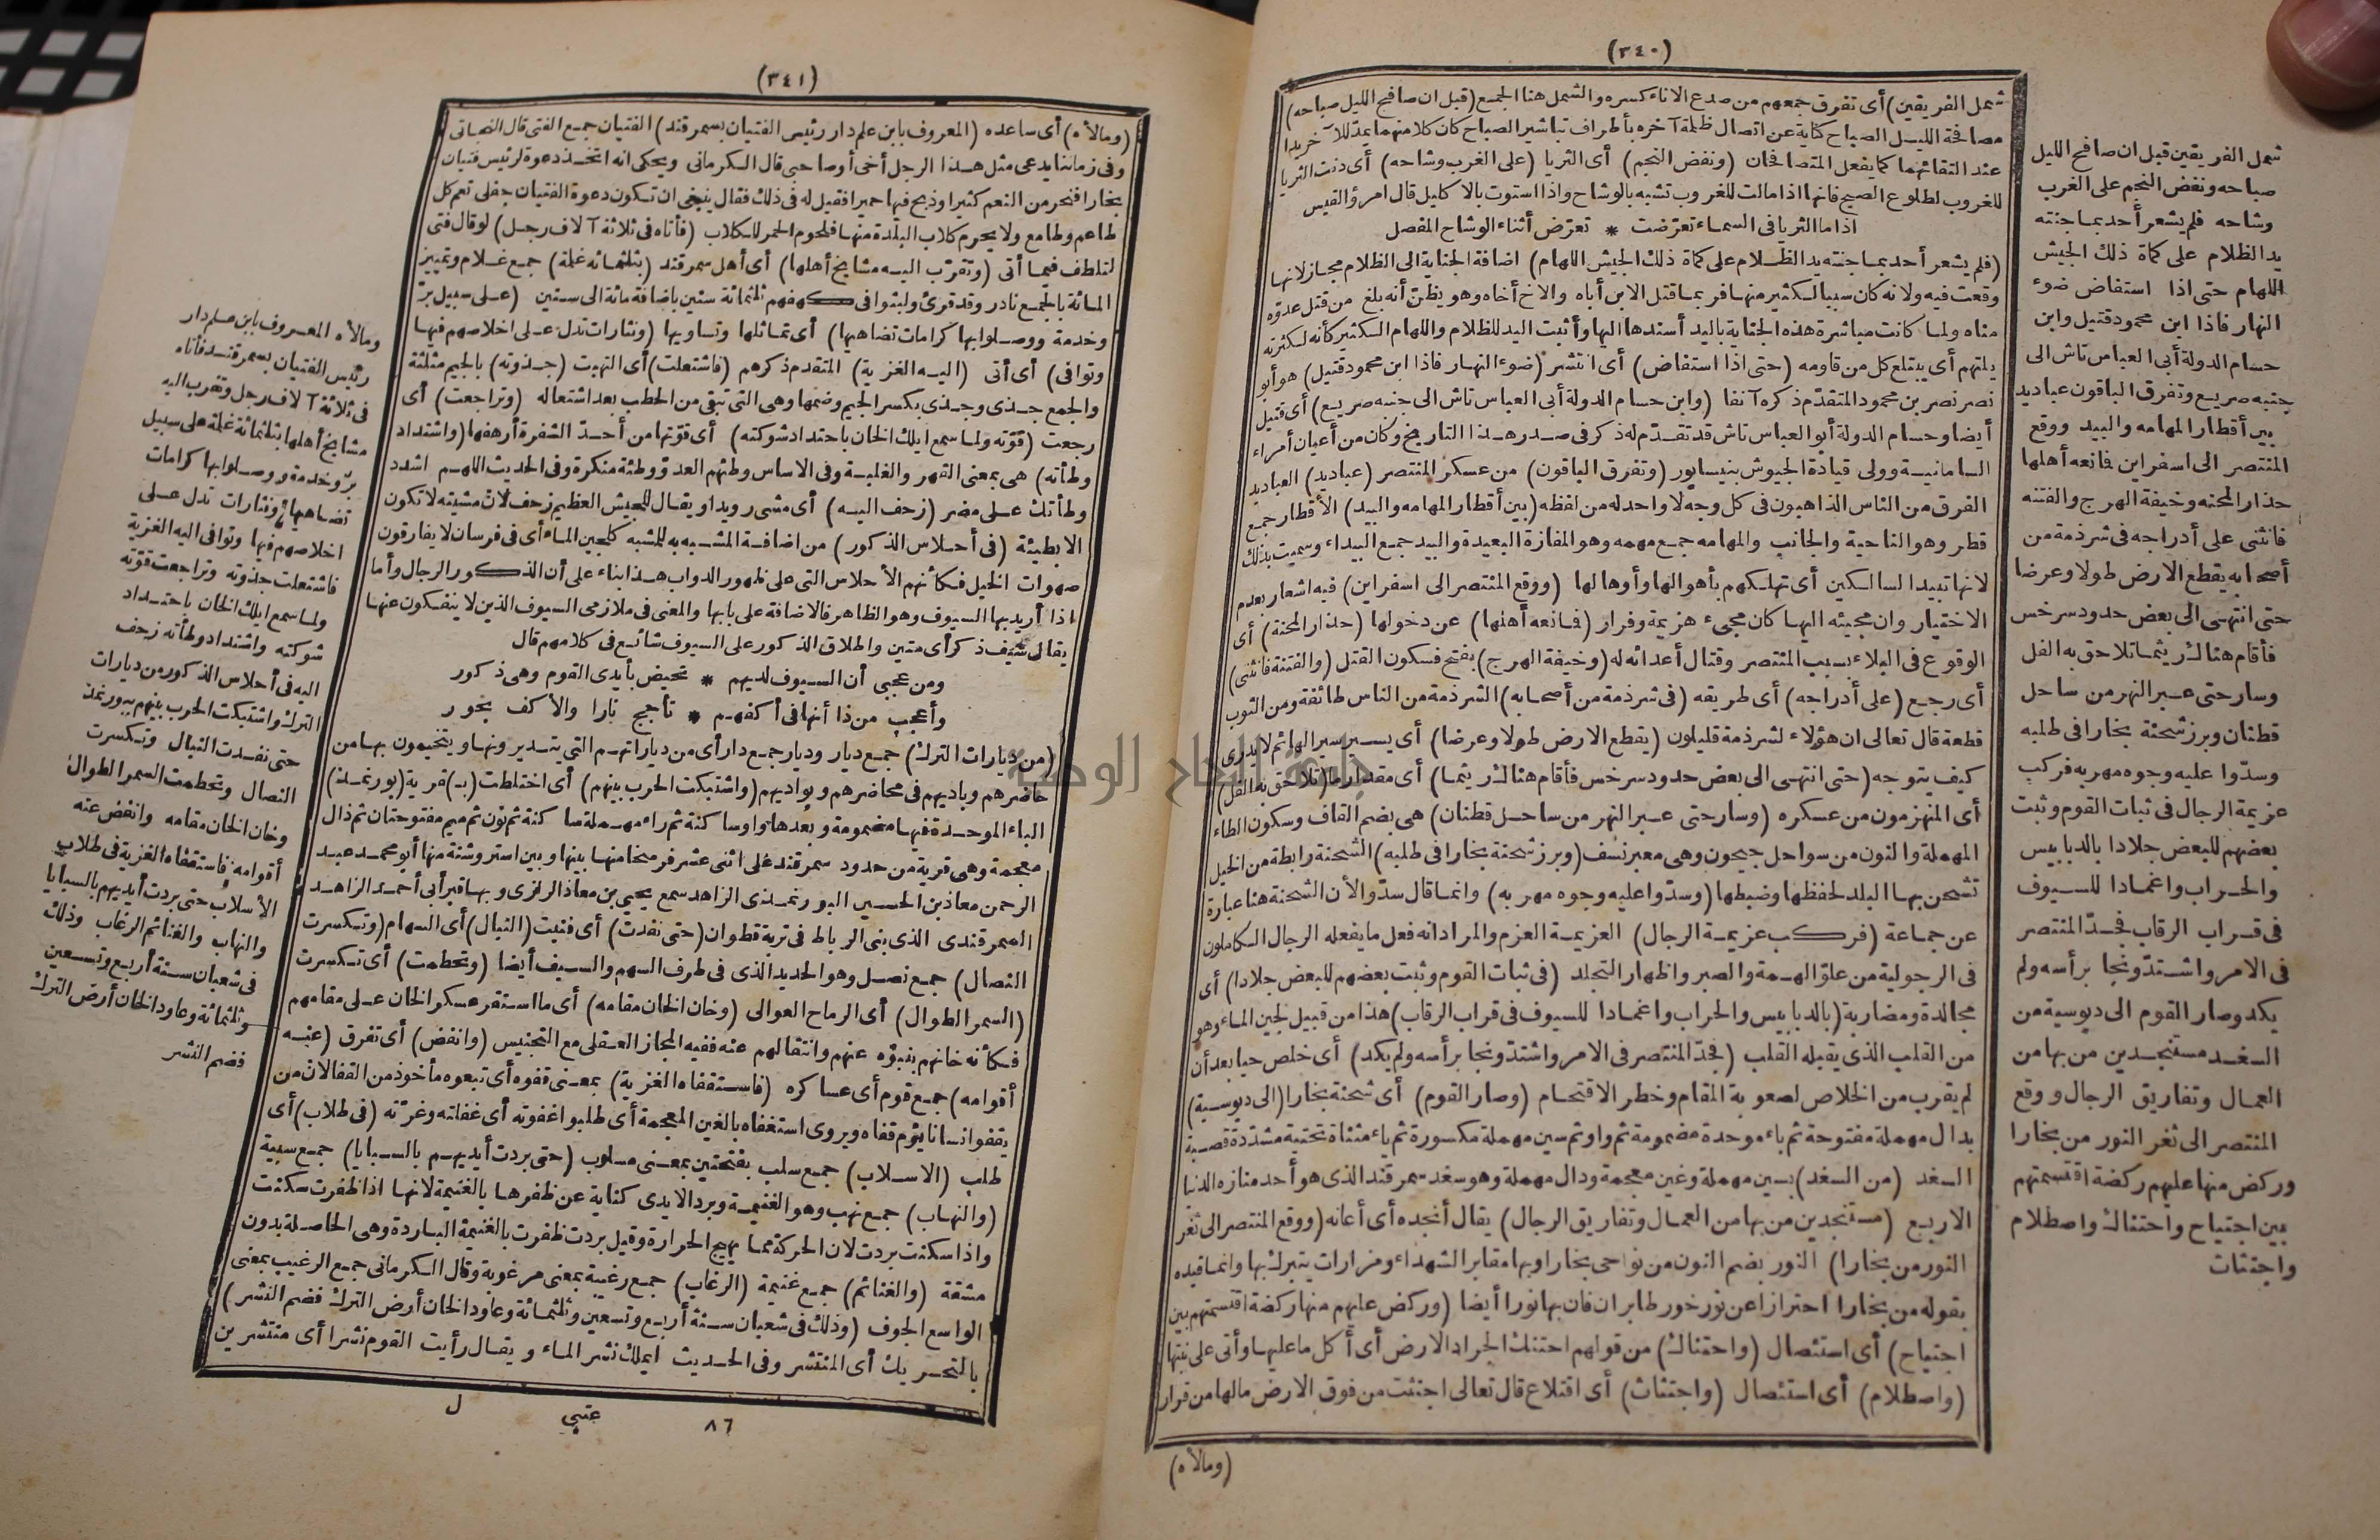 (٣٤٠)
شمل الفريقين) أى تفرق جمعهم من صدع الاناء كسره والشمل هنا الجمع (قبل ان صافح الليل صباحه)
مصافحة الليل الصباح كناية عن اتصال ظلمة آخره بأطراف تباشير الصباح كان كلا منهما يمد للآخر يدا
عند التقائهما كما يفعل المتصافحان (ونفض النجم) أى الثريا (على الغرب وشاحه) أى دنت الثريا
للغروب لطلوع الصبح فانها اذا مالت للغروب تشبه بالوشاح واذا استوت بالاكليل قال امرؤ القيس
اذا ما الثريا فى السماء تعرّضت * تعرّض أثناء الوشاح المفصل
(فلم يشعر أحد بما جنته يد الظلام على كماة ذلك الجيش اللهام) اضافة الجناية الى الظلام مجاز لانها
وقعت فيه ولانه كان سببا لكثير منها فربما قتل الابن أباه والاخ أخاه وهو يظنّ أنه بلغ من قتل عدوّه
مناه ولما كانت مباشرة هذه الجناية باليد أسندها اليها وأثبت اليد للظلام واللهام الكثير كأنه لكثرته
يلتهم أى يبتلع كل من قاومه (حتى اذا استفاض) أى انتشر (ضوء النهار فاذا ابن محمود قتيل) هو أبو
نصر نصر بن محمود المتقدّم ذكره آنفا (وابن حسام الدولة أبى العباس تاش الى جنبه صريع) أى قتيل
أيضا وحسام الدولة أبو العباس تاش قد تقدّم له ذكر فى صدر هذا التاريخ وكان من أعيان أمراء
السامانية وولى قيادة الجيوش بنيسابور (وتفرق الباقون) من عسكر المنتصر (عباديد) العباديد
الفرق من الناس الذاهبون فى كل وجه لا واحد له من لفظه (بين أقطار المهامه والبيد) الأقطار جمع
قطر وهو الناحية والجانب والمهامه جمع مهمه وهو المفازة البعيدة والبيد جمع البيداء وسميت بذلك
لانها تبيد السالكين أى تهلكهم بأهوالها وأوهالها (ووقع المنتصر الى اسفراين) فيه اشعار بعدم
الاختيار وان مجيئه اليها كان مجىء هزيمة وفرار (فمانعه أهلها) عن دخولها (حذار المحنة) أى
الوقوع فى البلاء بسبب المنتصر وقتال أعدائه له (وخيفة الهرج) بفتح فسكون القتل (والفتنة فانثنى)
أى رجع (على أدراجه) أى طريقه (فى شرذمة من أصحابه) الشرذمة من الناس طائفة ومن الثوب
قطعة قال تعالى ان هؤلاء لشرذمة قليلون (يقطع الارض طولا وعرضا) أى يسير سير الهائم لا يدرى
كيف يتوجه (حتى انتهى الى بعض حدود سرخس فأقام هنالك ريثما) أى مقدار ما (تلاحق به الفل)
أى المنهزمون من عسكره (وسار حتى عبر النهر من ساحل قطنان) هى بضم القاف وسكون الطاء
المهملة والنون من سواحل جيحون وهى معبر نسف (وبرز شحنة بخارا فى طلبه) الشحنة رابطة من الخيل
تشحن بها البلد لحفظها وضبطها (وسدّوا عليه وجوه مهربه) وانما قال سدّوا لأن الشحنة هنا عبارة
عن جماعة (فركب عزيمة الرجال) العزيمة العزم والمراد انه فعل ما يفعله الرجال الكاملون
فى الرجولية من علوّ الهمة والصبر واظهار التجلد (فى ثبات القوم وثبت بعضهم للبعض جلادا) أى
مجالدة ومضاربة (بالدبابيس والحراب واغمادا للسيوف فى قراب الرقاب) هذا من قبيل لجين الماء وهو
من القلب الذى يقبله القلب (فجدّ المنتصر فى الامر واشتدّ ونجا برأسه ولم يكد) أى خلص حيا بعد أن
لم يقرب من الخلاص لصعوبة المقام وخطر الاقتحام (وصار القوم) أى شحنة بخارا (الى دبوسية)
بدال مهملة مفتوحة ثم باء موحدة مضمومة ثم واو ثم سين مهملة مكسورة ثم ياء مثناة تحتية مشدّدة قصبة
السغد (من السغد) بسين مهملة وغين معجمة ودال مهملة وهو سغد سمرقند الذى هو أحد منازه الدنيا
الاربع (مستنجدين من بها من العمال وتفاريق الرجال) يقال أنجده أى أعانه (ووقع المنتصر الى ثغر
النور من بخارا) النور بضم النون من نواحى بخارا وبها مقابر الشهداء ومزارات يتبرك بها وانما قيده
بقوله من بخارا احترازا عن نور خور طابران فان بها نورا أيضا (وركض عليهم منها ركضة اقتسمتهم بين
اجتياح) أى استئصال (واحتناك) من قولهم احتنك الجراد الارض أى أكل ما عليها وأتى على نبتها
(واصطلام) أى استئصال (واجتثاث) أى اقتلاع قال تعالى اجتثت من فوق الارض مالها من قرار
(ومالأه)
شمل الفريقين قبل ان صافح الليل
صباحه ونفض النجم على الغرب
وشاحه فلم يشعر أحد بما جنته
يد الظلام على كماة ذلك الجيش
اللهام حتى اذا استفاض ضوء
النهار فاذا ابن محمود قتيل وابن
حسام الدولة أبى العباس تاش الى
جنبه صريع وتفرق الباقون عباديد
بين أقطار المهامه والبيد ووقع
المنتصر الى اسفراين فمانعه أهلها
حذار المحنة وخيفة الهرج والفتنه
فانثنى على أدراجه فى شرذمة من
أصحابه يقطع الارض طولا وعرضا
حتى انتهى الى بعض حدود سرخس
فأقام هنالك ريثما تلاحق به الفل
وسار حتى عبر النهر من ساحل
قطنان وبرز شحنة بخارا فى طلبه
وسدّوا عليه وجوه مهربه فركب
عزيمة الرجال فى ثبات القوم وثبت
بعضهم للبعض جلادا بالدبابيس
والحراب واغمادا للسيوف
فى قراب الرقاب فجدّ المنتصر
فى الامر واشتدّ ونجا برأسه ولم
يكد وصار القوم الى دبوسية من
السغد مستنجدين من بها من
العمال وتفاريق الرجال ووقع
المنتصر الى ثغر النور من بخارا
وركض منها عليهم ركضة اقتسمتهم
بين اجتياح واحتناك واصطلام
واجتثاث
(٣٤١)
(ومالأه) أى ساعده (المعروف بابن علم دار رئيس الفتيان بسمرقند) الفتيان جمع الفتى قال النجاتى
وفى زماننا يدعى مثل هذا الرجل أخى أوصاحى قال الكرمانى ويحكى انه اتخذ دعوة لرئيس فتيان
بخارا فنحر من النعم كثيرا وذبح فيها حميرا فقيل له فى ذلك فقال ينبغى ان تكون دعوة الفتيان جفلى تعم كل
طاعم وطامع ولا يحرم كلاب البلدة منها فلحوم الحمر للكلاب (فأتاه فى ثلاثة آلاف رجل) لو قال فتى
لتلطف فيما أتى (وتقرّب اليه مشايخ أهلها) أى أهل سمرقند (بثلثمائة غلمة) جمع غلام وتمييز
المائة بالجمع نادر وقد قرئ ولبثوا فى كهفهم ثلثمائة سنين باضافة مائة الى سنين (على سبيل برّ
وخدمة ووصلوا بها كرامات تضاهيها) أى تماثلها وتساويها (ونثارات تدل على اخلاصهم فيها
وتوافى) أى أتى (اليه الغزية) المتقدم ذكرهم (فاشتعلت) أى التهبت (جذوته) بالجيم مثلثة
والجمع جذى وجذى بكسر الجيم وضمها وهى التى تبقى من الحطب بعد اشتعاله (وتراجعت) أى
رجعت (قوّته ولما سمع ايلك الخان باحتداد شوكته) أى قوّتها من أحدّ الشفرة أرهفها (واشتداد
وطأته) هى بمعنى القهر والغلبة وفى الاساس وطئهم العدوّ وطئة منكرة وفى الحديث اللهم اشدد
وطأتك على مضر (زحف اليه) أى مشى رويدا ويقال للجيش العظيم زحف لان مشيته لا تكون
الا بطيئة (فى أحلاس الذكور) من اضافة المشبه به للمشبه كلجين الماء أى فى فرسان لا يفارقون
صهوات الخيل فكأنهم الأحلاس التى على ظهور الدواب هذا بناء على أن الذكور الرجال وأما
اذا أريد بها السيوف وهو الظاهر فالاضافة على بابها والمعنى فى ملازمى السيوف الذين لا ينفكون عنها
يقال سيف ذكر أى متين واطلاق الذكور على السيوف شائع فى كلامهم قال
ومن عجبى أن السيوف لديهم * تحيض بأيدى القوم وهى ذكور
وأعجب من ذا أنها فى أكفهم * تأجج نارا والأكف بحور
(من ديارات الترك) جمع ديار وديار جمع دار أى من دياراتهم التى يتديرونها ويتخيمون بها من
حاضرهم وباديهم فى محاضرهم وبواديهم (واشتبكت الحرب بينهم) أى اختلطت (بـ) قرية (بورنمذ)
الباء الموحدة فيها مضمومة وبعدها واو ساكنة ثم راء مهملة ساكنة ثم نون ثم ميم مفتوحتان ثم ذال
معجمة وهى قرية من حدود سمرقند على اثنى عشر فرسخا منها بينها وبين استروشنة منها أبو محمد عبد
الرحمن معاذ بن الحسين البورنمذى الزاهد سمع يحيى بن معاذ الرازى وبها قبر أبى أحمد الزاهد
السمرقندى الذى بنى الرباط فى تربة قطوان (حتى نفدت) أى فنيت (النبال) أى السهام (وتكسرت
النصال) جمع نصل وهو الحديد الذى فى طرف السهم والسيف أيضا (وتحطمت) أى تكسرت
(السمر الطوال) أى الرماح العوالى (وخان الخان مقامه) أى ما استقر عسكر الخان على مقامهم
فكأنه خانهم بنبوّه عنهم وانتقالهم عنه ففيه المجاز العقلى مع التجنيس (وانفض) أى تفرق (عنه
أقوامه) جمع قوم أى عساكره (فاستقفاه الغزية) بمعنى قفوه أى تبعوه مأخوذ من القفا لان من
يقفو انسانا يؤم قفاه ويروى استغفاه بالغين المعجمة أى طلبوا غفوته أى غفلته وغرّته (فى طلاب) أى
طلب (الاسلاب) جمع سلب بفتحتين بمعنى مسلوب (حتى بردت أيديهم بالسبايا) جمع سبية
(والنهاب) جمع نهب وهو الغنيمة وبرد الايدى كناية عن ظفرها بالغنيمة لانها اذا ظفرت سكنت
واذا سكنت بردت لان الحركة مما يهيج الحرارة وقيل بردت ظفرت بالغنيمة الباردة وهى الحاصلة بدون
مشقة (والغنائم) جمع غنيمة (الرغاب) جمع رغيبة بمعنى مرغوبة وقال الكرمانى جمع الرغيب بمعنى
الواسع الجوف (وذلك فى شعبان سنة أربع وتسعين وثلثمائة وعاود الخان أرض الترك فضم النشر)
بالتحريك أى المنتشر وفى الحديث ايملك نشر الماء ويقال رأيت القوم نشرا أى منتشرين
٨٦ عتبى ل
ومالأه المعروف بابن علم دار
رئيس الفتيان بسمرقند فأتاه
فى ثلاثة آلاف رجل وتقرب اليه
مشايخ أهلها بثلثمائة غلمة على سبيل
برّ وخدمة ووصلوا بها كرامات
تضاهيها ونثارات تدل على
اخلاصهم فيها وتوافى اليه الغزية
فاشتعلت جذوته وتراجعت قوّته
ولما سمع ايلك الخان باحتداد
شوكته واشتداد وطأته زحف
اليه فى أحلاس الذكور من ديارات
الترك واشتبكت الحرب بينهم ببورنمذ
حتى نفدت النبال وتكسرت
النصال وتحطمت السمر الطوال
وخان الخان مقامه وانفض عنه
أقوامه فاستقفاه الغزية فى طلاب
الأسلاب حتى بردت أيديهم بالسبايا
والنهاب والغنائم الرغاب وذلك
فى شعبان سنة أربع وتسعين
وثلثمائة وعاود الخان أرض الترك
فضم النشر
جامعة النجاح الوطنية